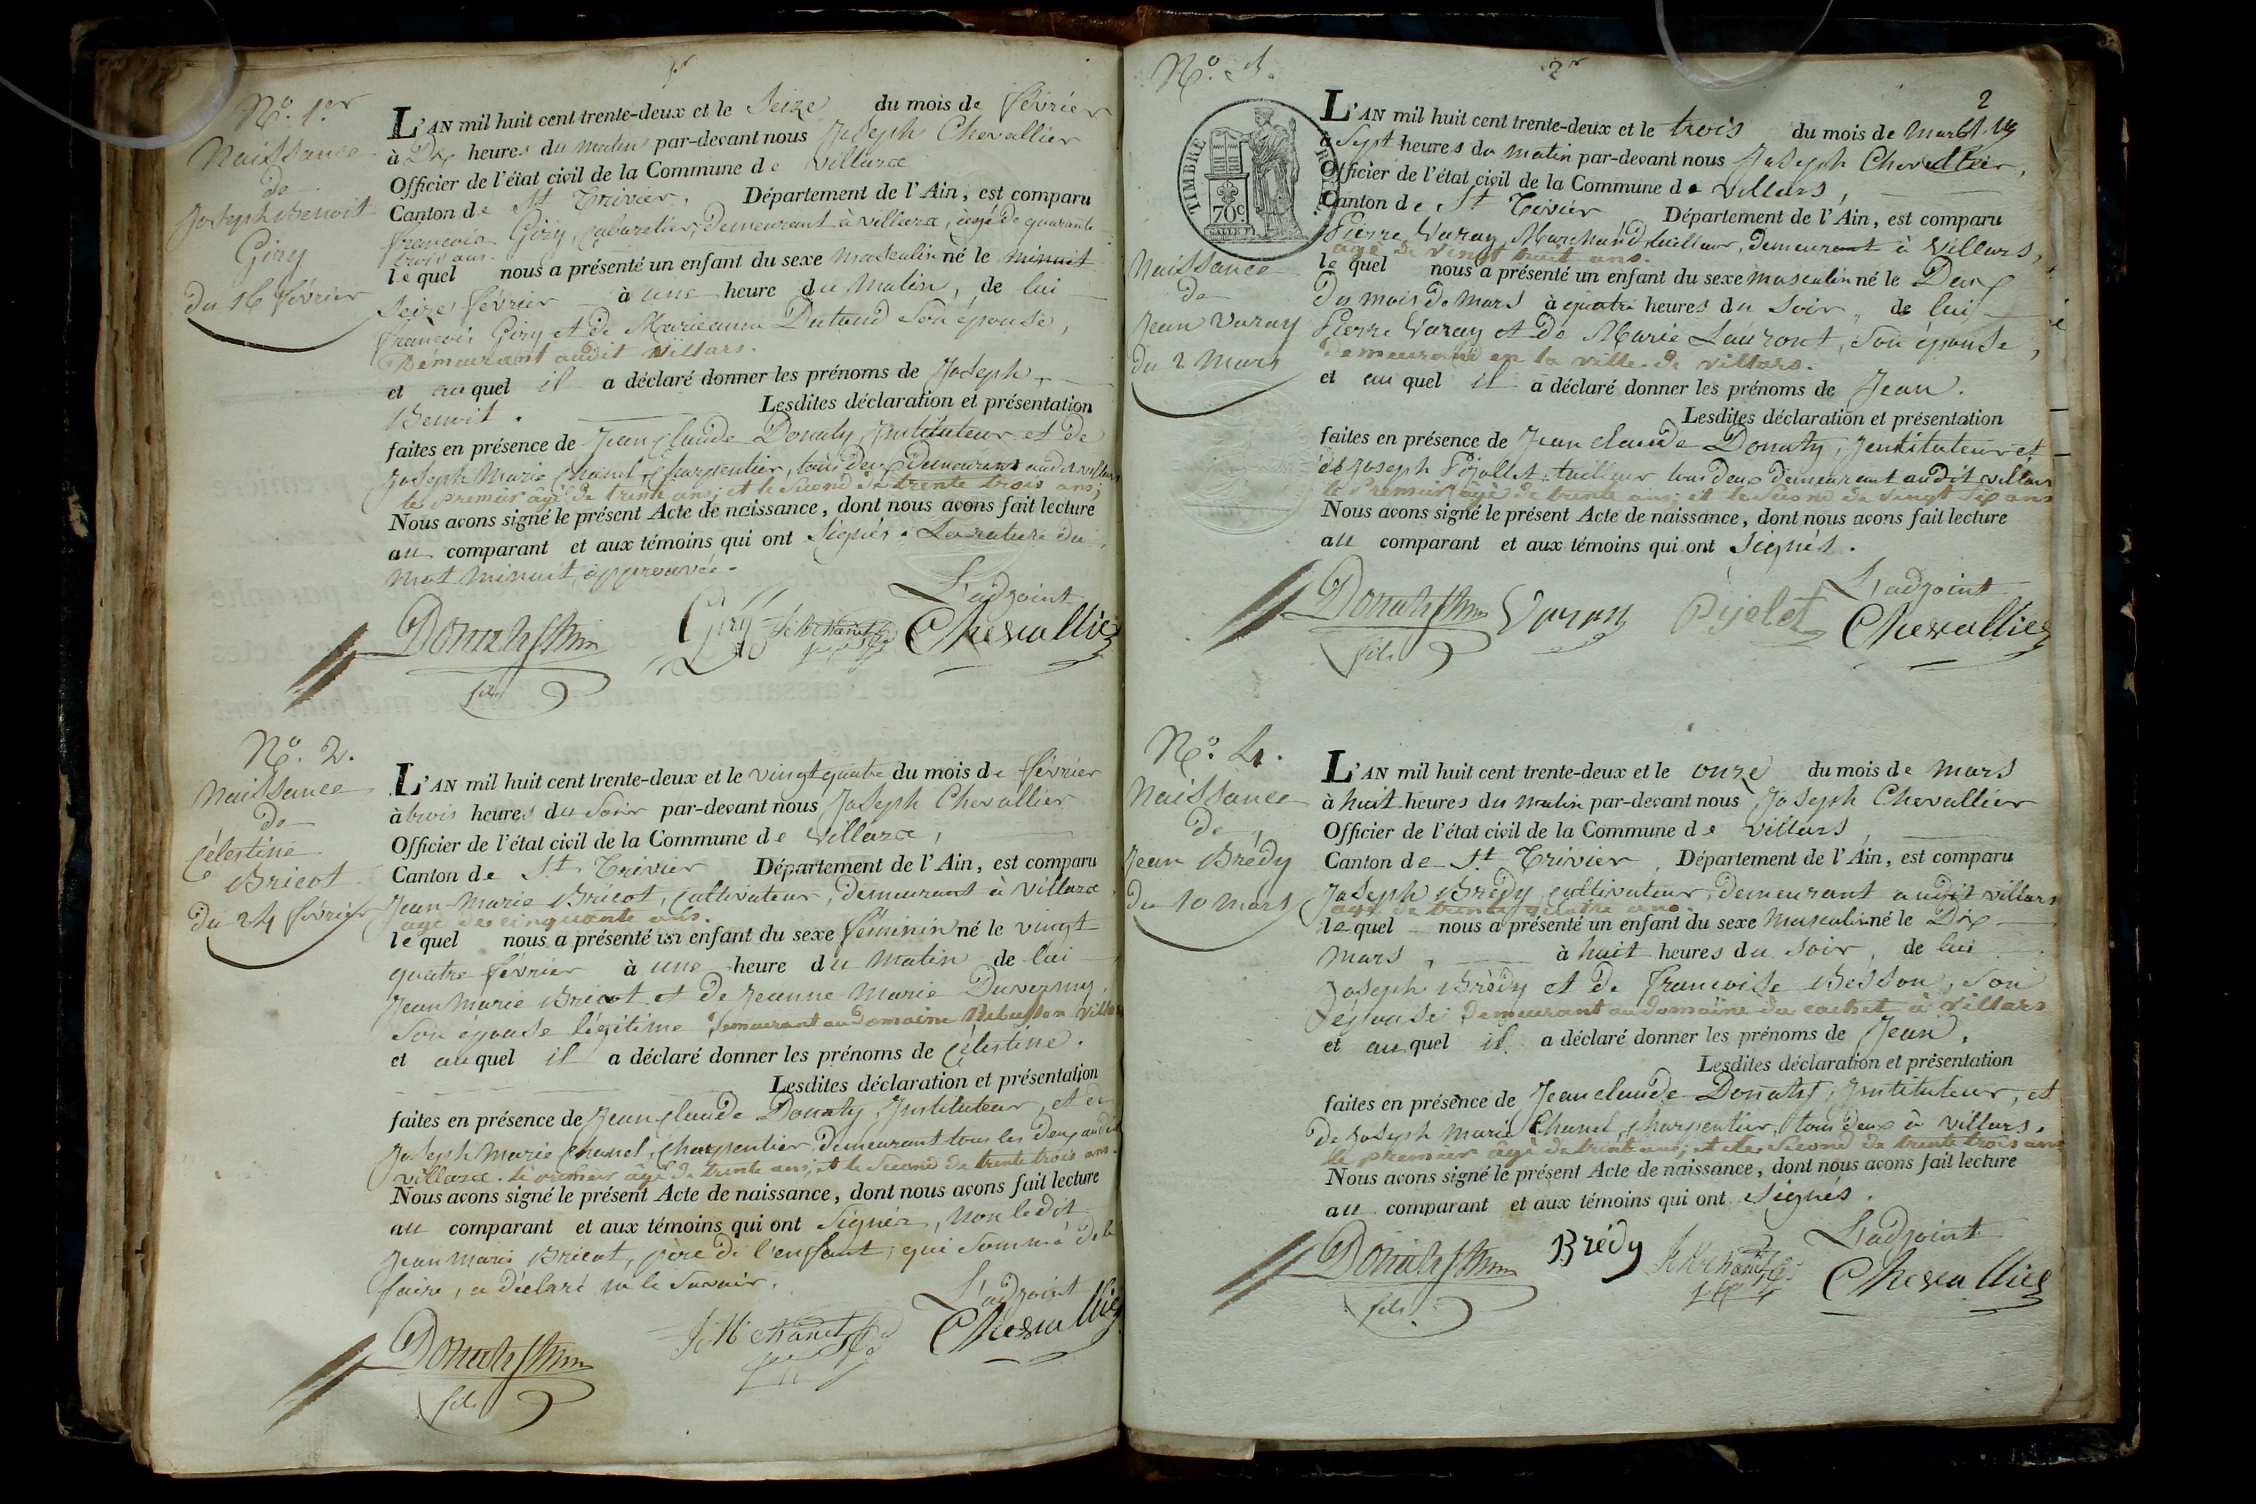 1er
N.o 1.er
Naissance
de
Joseph Benoit
Giry
du 16 février
L'AN mil huit cent trente-deux et le Seize du mois de février
à Dix heures du matin par-devant nous Joseph Chevallier
Officier de l'état civil de la Commune de Villars
Canton de St Trivier, Département de l'Ain, est comparu
françois Giry, Cabaretier, demeurant à villars, agé de quarante
trois ans.
lequel nous a présenté un enfant du sexe masculin né le minuit
Seize février à une heure du Matin, de lui
françois Giry et de Marieanne Dutaud Son épouse,
Demeurant audit Villars.
et auquel il a déclaré donner les prénoms de Joseph,
Benoit. Lesdites déclaration et présentation
faites en présence de Jean Claude Donaty, Instituteur et de
Joseph Marie Chanel, Charpentier, tous deux demeurant audit villars
le premier âgé de trente ans; et le second de trente trois ans;
Nous avons signé le présent Acte de naissance, dont nous avons fait lecture
au comparant et aux témoins qui ont Signés. La rature du
mot minuit, approuvée.
L'adjoint
Giry Chevallier
fils
N.o 2.
Naissance
de
Célestine
Bricot
du 24 février
L'AN mil huit cent trente-deux et le vingt quatre du mois de février
à trois heures du Soir par-devant nous Joseph Chevallier
Officier de l'état civil de la Commune de villars,
Canton de St Trivier Département de l'Ain, est comparu
Jean Marie Bricot, Cultivateur, demeurant à Villars
agé de cinquante ans.
lequel nous a présenté un enfant du sexe féminin né le vingt
quatre février à une heure du Matin de lui
Jean Marie Bricot et de Jeanne Marie Duvernay
Son épouse légitime demeurant au domaine Villars
et auquel il a déclaré donner les prénoms de Célestine.
Lesdites déclaration et présentation
faites en présence de Jean Claude Donaty, Instituteur, et de
Joseph Marie Chanel, Charpentier demeurant tous les deux audit
villars. le premier âgé de trente ans; et le Second de trente trois ans.
Nous avons signé le présent Acte de naissance, dont nous avons fait lecture
au comparant et aux témoins qui ont Signés, Non le dit
Jean Marie Bricot, père de l'enfant, qui Sommé de le
faire, a déclaré ne le Savoir.
L'adjoint
J M Chanel Chevallier
fils
2e
N.o 3.
2
TIMBRE ROYAL
70c
Naissance
de
Jean Varay
du 2 Mars
L'AN mil huit cent trente-deux et le trois du mois de Mars
à Sept heures du matin par-devant nous Joseph Chevallier,
Officier de l'état civil de la Commune de Villars,
Canton de St Trivier Département de l'Ain, est comparu
Pierre Varay, Marchand tailleur, demeurant à Villars,
agé de vingt huit ans.
lequel nous a présenté un enfant du sexe masculin né le Deux
du mois de Mars à quatre heures du Soir, de lui
Pierre Varay et de Marie Lauront, Son épouse,
demeurant en la ville de villars.
et auquel il a déclaré donner les prénoms de Jean.
Lesdites déclaration et présentation
faites en présence de Jean claude Donaty, Instituteur et
de Joseph Pijollet, tailleur tous deux demeurant audit villars
le Premier âgé de trente ans; et le second de vingt six ans
Nous avons signé le présent Acte de naissance, dont nous avons fait lecture
au comparant et aux témoins qui ont Signés.
L'adjoint
Varay Pijolet Chevallier
fils
N.o 4.
Naissance
de
Jean Brédy
du 10 Mars
L'AN mil huit cent trente-deux et le onze du mois de mars
à huit heures du matin par-devant nous Joseph Chevallier
Officier de l'état civil de la Commune de villars,
Canton de St Trivier Département de l'Ain, est comparu
Joseph Brédy, Cultivateur, demeurant audit villars
agé de trente quatre ans.
lequel nous a présenté un enfant du sexe Masculin né le Dix
mars, à huit heures du soir, de lui
Joseph Brédy et de francoise Besson, son
épouse; demeurant au domaine du cachet à Villars
et auquel il a déclaré donner les prénoms de Jean,
Lesdites déclaration et présentation
faites en présence de Jean claude Donaty, Instituteur, et
de Joseph Marie Chanel, charpentier, tous deux à villars.
le premier âgé de trente ans; et le second de trente trois ans
Nous avons signé le présent Acte de naissance, dont nous avons fait lecture
au comparant et aux témoins qui ont Signés.
L'adjoint
Brédy Chevallier
fils